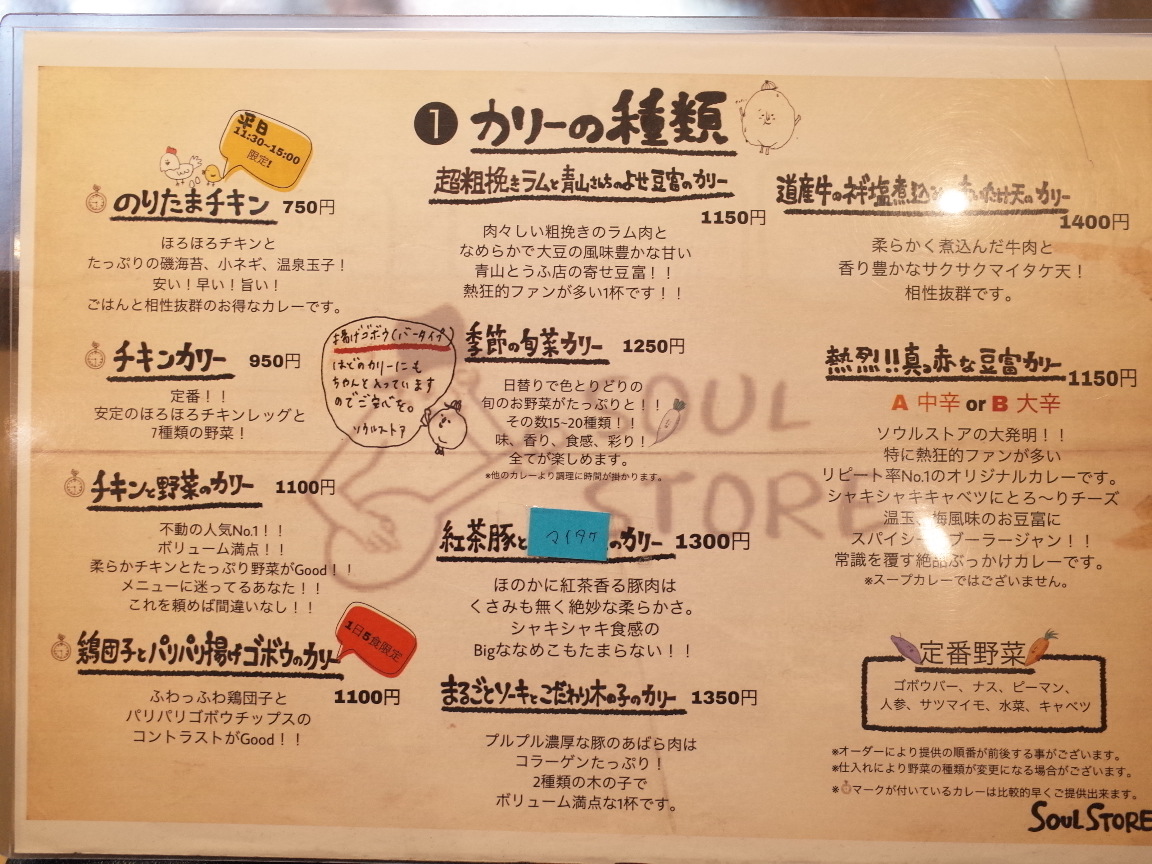 ❶ カリーの種類
平日
11:30~15:00
限定!
のりたまチキン 750円
ほろほろチキンと
たっぷりの磯海苔、小ネギ、温泉玉子！
安い！早い！旨い！
ごはんと相性抜群のお得なカレーです。
チキンカリー 950円
定番！！
安定のほろほろチキンレッグと
7種類の野菜！
揚げゴボウ(バータイプ)
はどのカリーにも
ちゃんと入っています
のでご安心を。
ソウルストア
チキンと野菜のカリー 1100円
不動の人気No.1！！
ボリューム満点！！
柔らかチキンとたっぷり野菜がGood！！
メニューに迷ってるあなた！！
これを頼めば間違いなし！！
1日5食限定
鶏団子とパリパリ揚げゴボウのカリー
1100円
ふわっふわ鶏団子と
パリパリゴボウチップスの
コントラストがGood！！
超粗挽きラムと青山さんちのよせ豆富のカリー
1150円
肉々しい粗挽きのラム肉と
なめらかで大豆の風味豊かな甘い
青山とうふ店の寄せ豆富！！
熱狂的ファンが多い1杯です！！
季節の旬菜カリー 1250円
日替りで色とりどりの
旬のお野菜がたっぷりと！！
その数15~20種類！！
味、香り、食感、彩り！
全てが楽しめます。
※他のカレーより調理に時間が掛かります。
紅茶豚とマイタケのカリー 1300円
ほのかに紅茶香る豚肉は
くさみも無く絶妙な柔らかさ。
シャキシャキ食感の
Bigななめこもたまらない！！
まるごとソーキとこだわり木の子のカリー 1350円
プルプル濃厚な豚のあばら肉は
コラーゲンたっぷり！
2種類の木の子で
ボリューム満点な1杯です。
道産牛のネギ塩煮込みたけ天のカリー
1400円
柔らかく煮込んだ牛肉と
香り豊かなサクサクマイタケ天！
相性抜群です。
熱烈!!真っ赤な豆富カリー
1150円
A 中辛 or B 大辛
ソウルストアの大発明！！
特に熱狂的ファンが多い
リピート率No.1のオリジナルカレーです。
シャキシャキキャベツにとろ〜りチーズ
温玉、梅風味のお豆富に
スパイシーブーラージャン！！
常識を覆す絶品ぶっかけカレーです。
※スープカレーではございません。
定番野菜
ゴボウバー、ナス、ピーマン、
人参、サツマイモ、水菜、キャベツ
※オーダーにより提供の順番が前後する事がございます。
※仕入れにより野菜の種類が変更になる場合がございます。
※マークが付いているカレーは比較的早くご提供出来ます。
SOUL STORE
SOUL
STORE